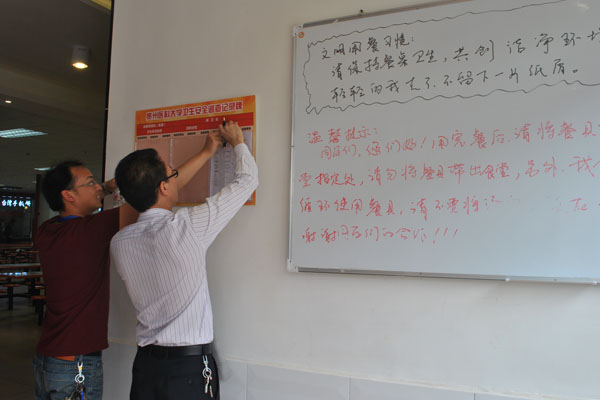 州医科大学卫生安全 查记录牌
文明用餐习惯：
请保持餐桌卫生，共创洁净环境
轻轻的我走了，不留下一片纸屑。
温馨提示：
同学们，你们好！用完餐后，请将餐具
堂指定处，请勿将餐具带出食堂，另外，我
循环使用餐具，请不要将
谢谢同学们的合作！！！